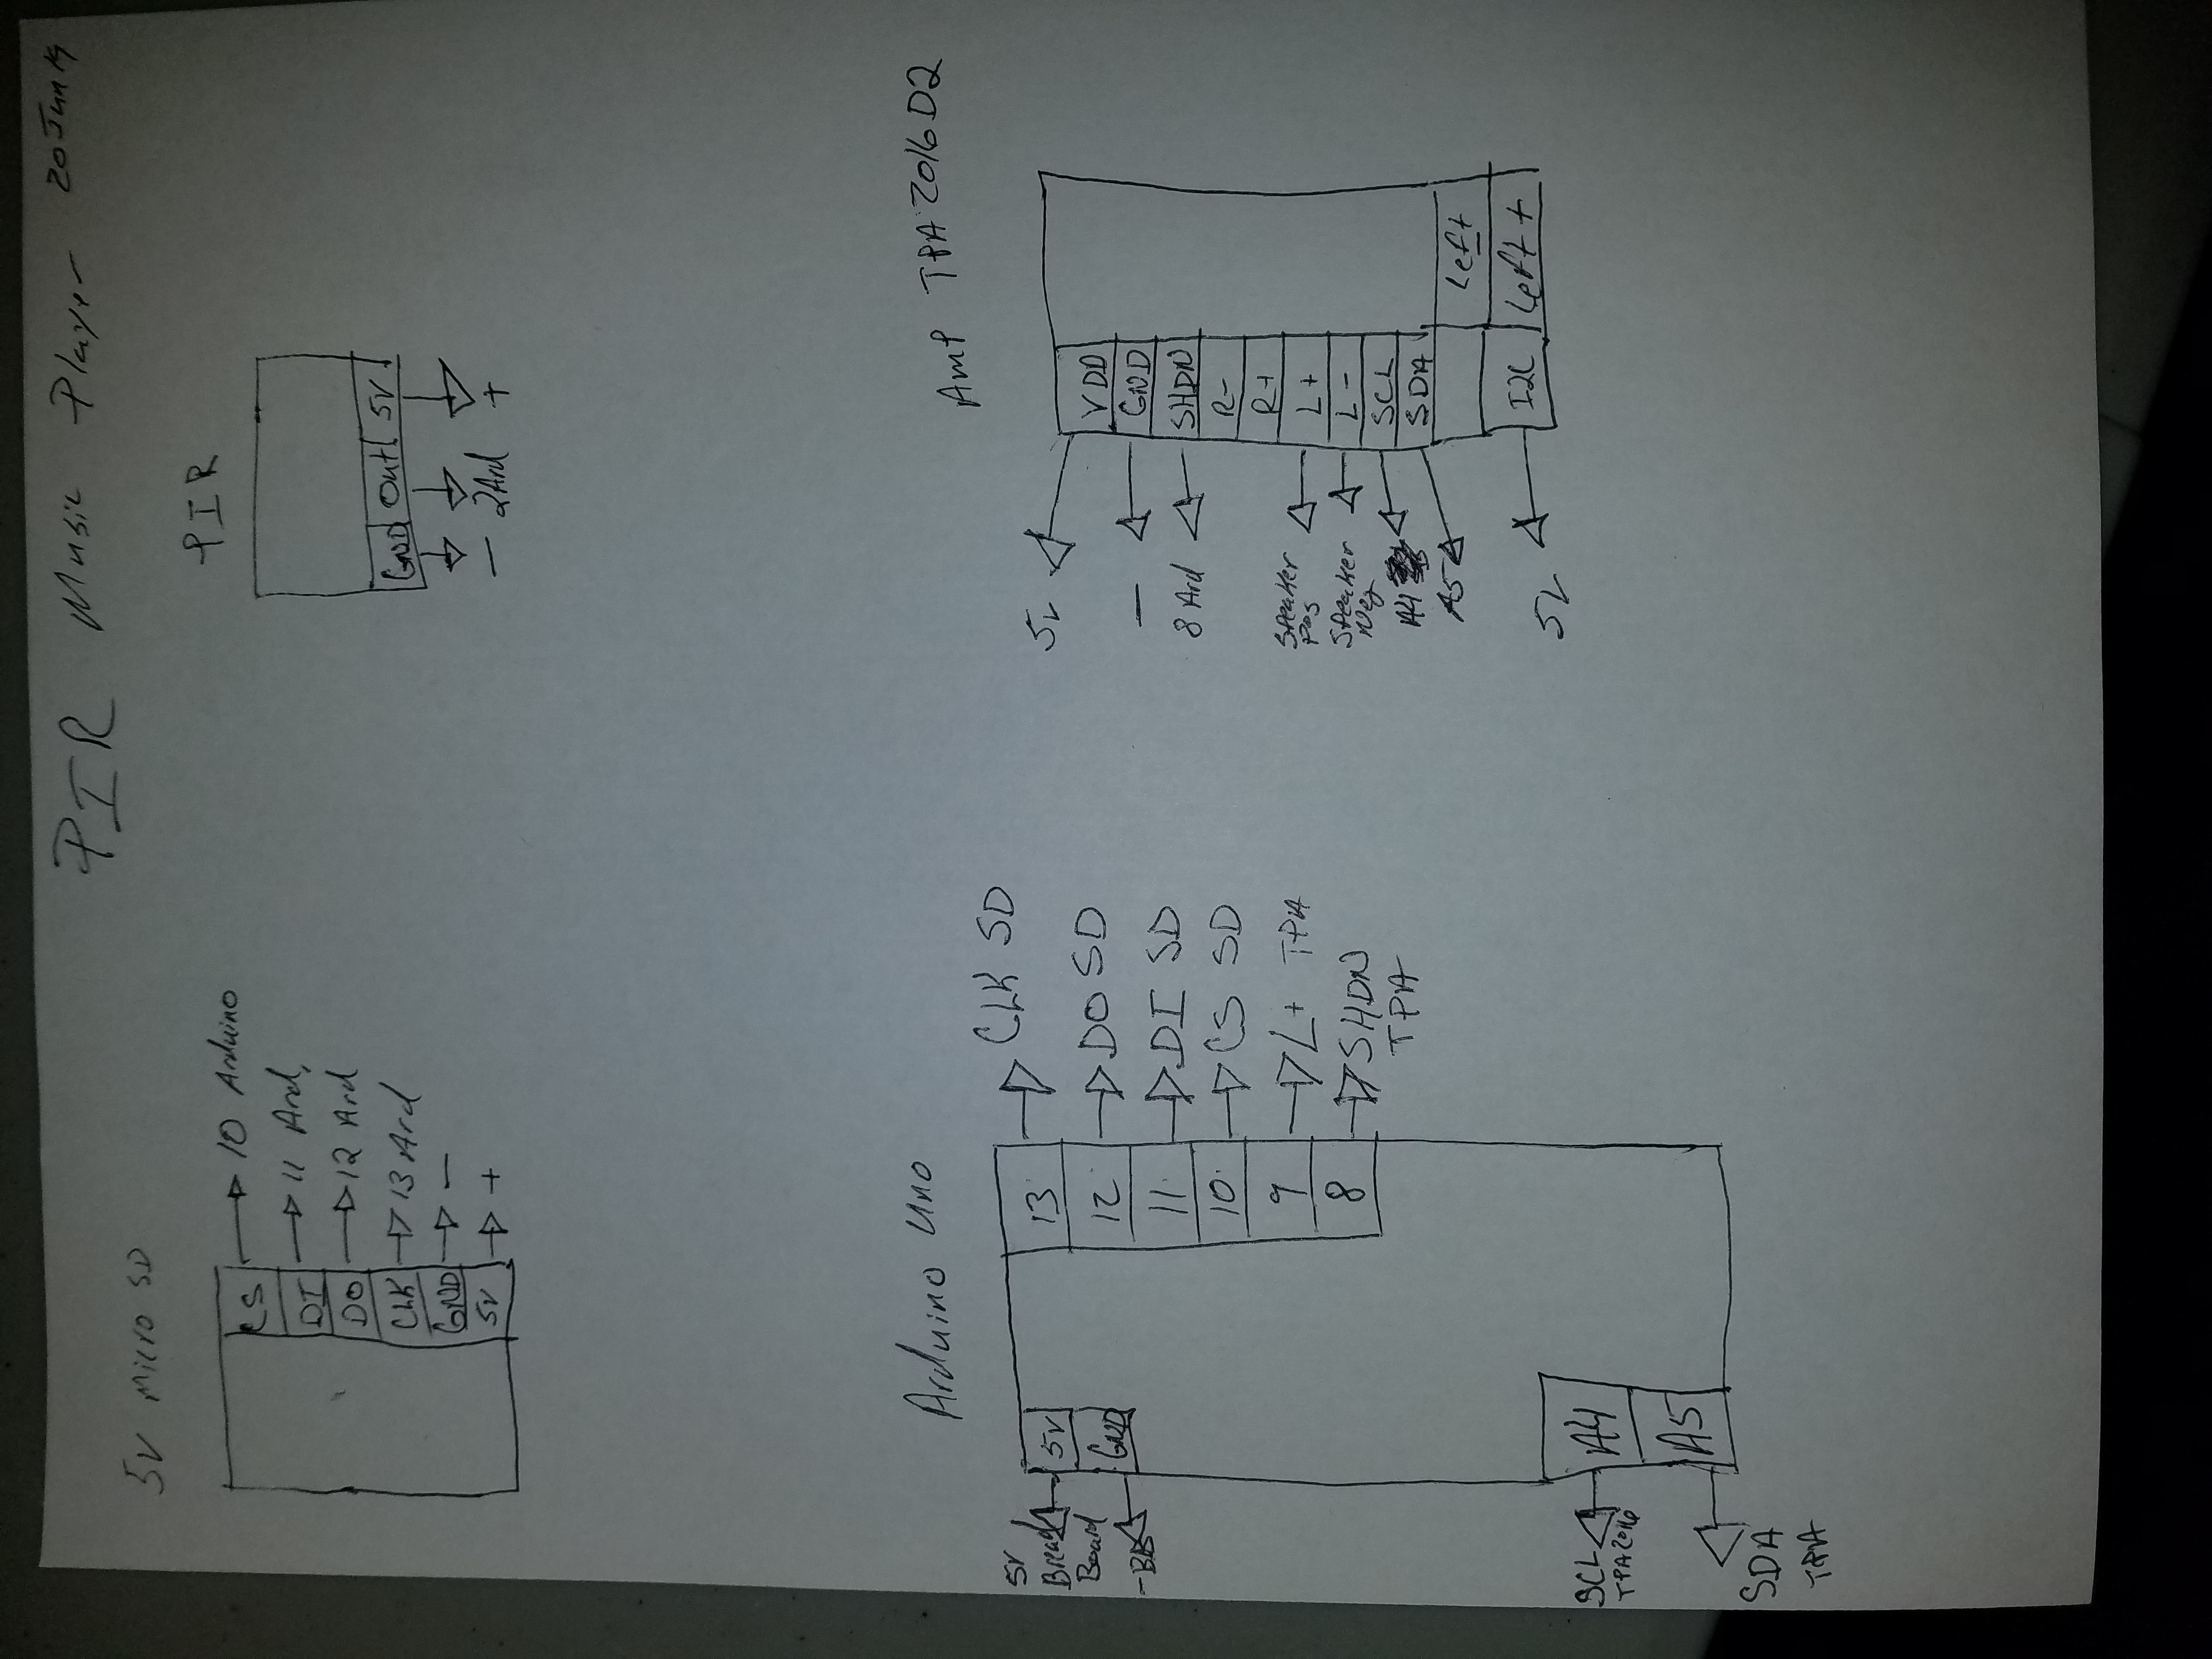 PIR Music Player 20 Jun 19
5V Micro SD
CS 10 Arduino
DI 11 Ard,
DO 12 Ard
CLK 13 Ard
GND -
5V +
PIR
GND Out 5V
- 2Ard +
Arduino Uno
5V
Bread
Board
5V
GND
-BB
13 CLK SD
12 DO SD
11 DI SD
10 CS SD
9 L+ TPA
8 SHDN
TPA
SCL
TPA2016
A4
A5
SDA
TPA
Amp TPA 2016 D2
5V VDD
- GND
8 Ard SHDN
R-
R+
Speaker
Pos
L+
Speaker
Neg
L-
A4 SCL
A5 SDA
Left -
5V I2C Left +